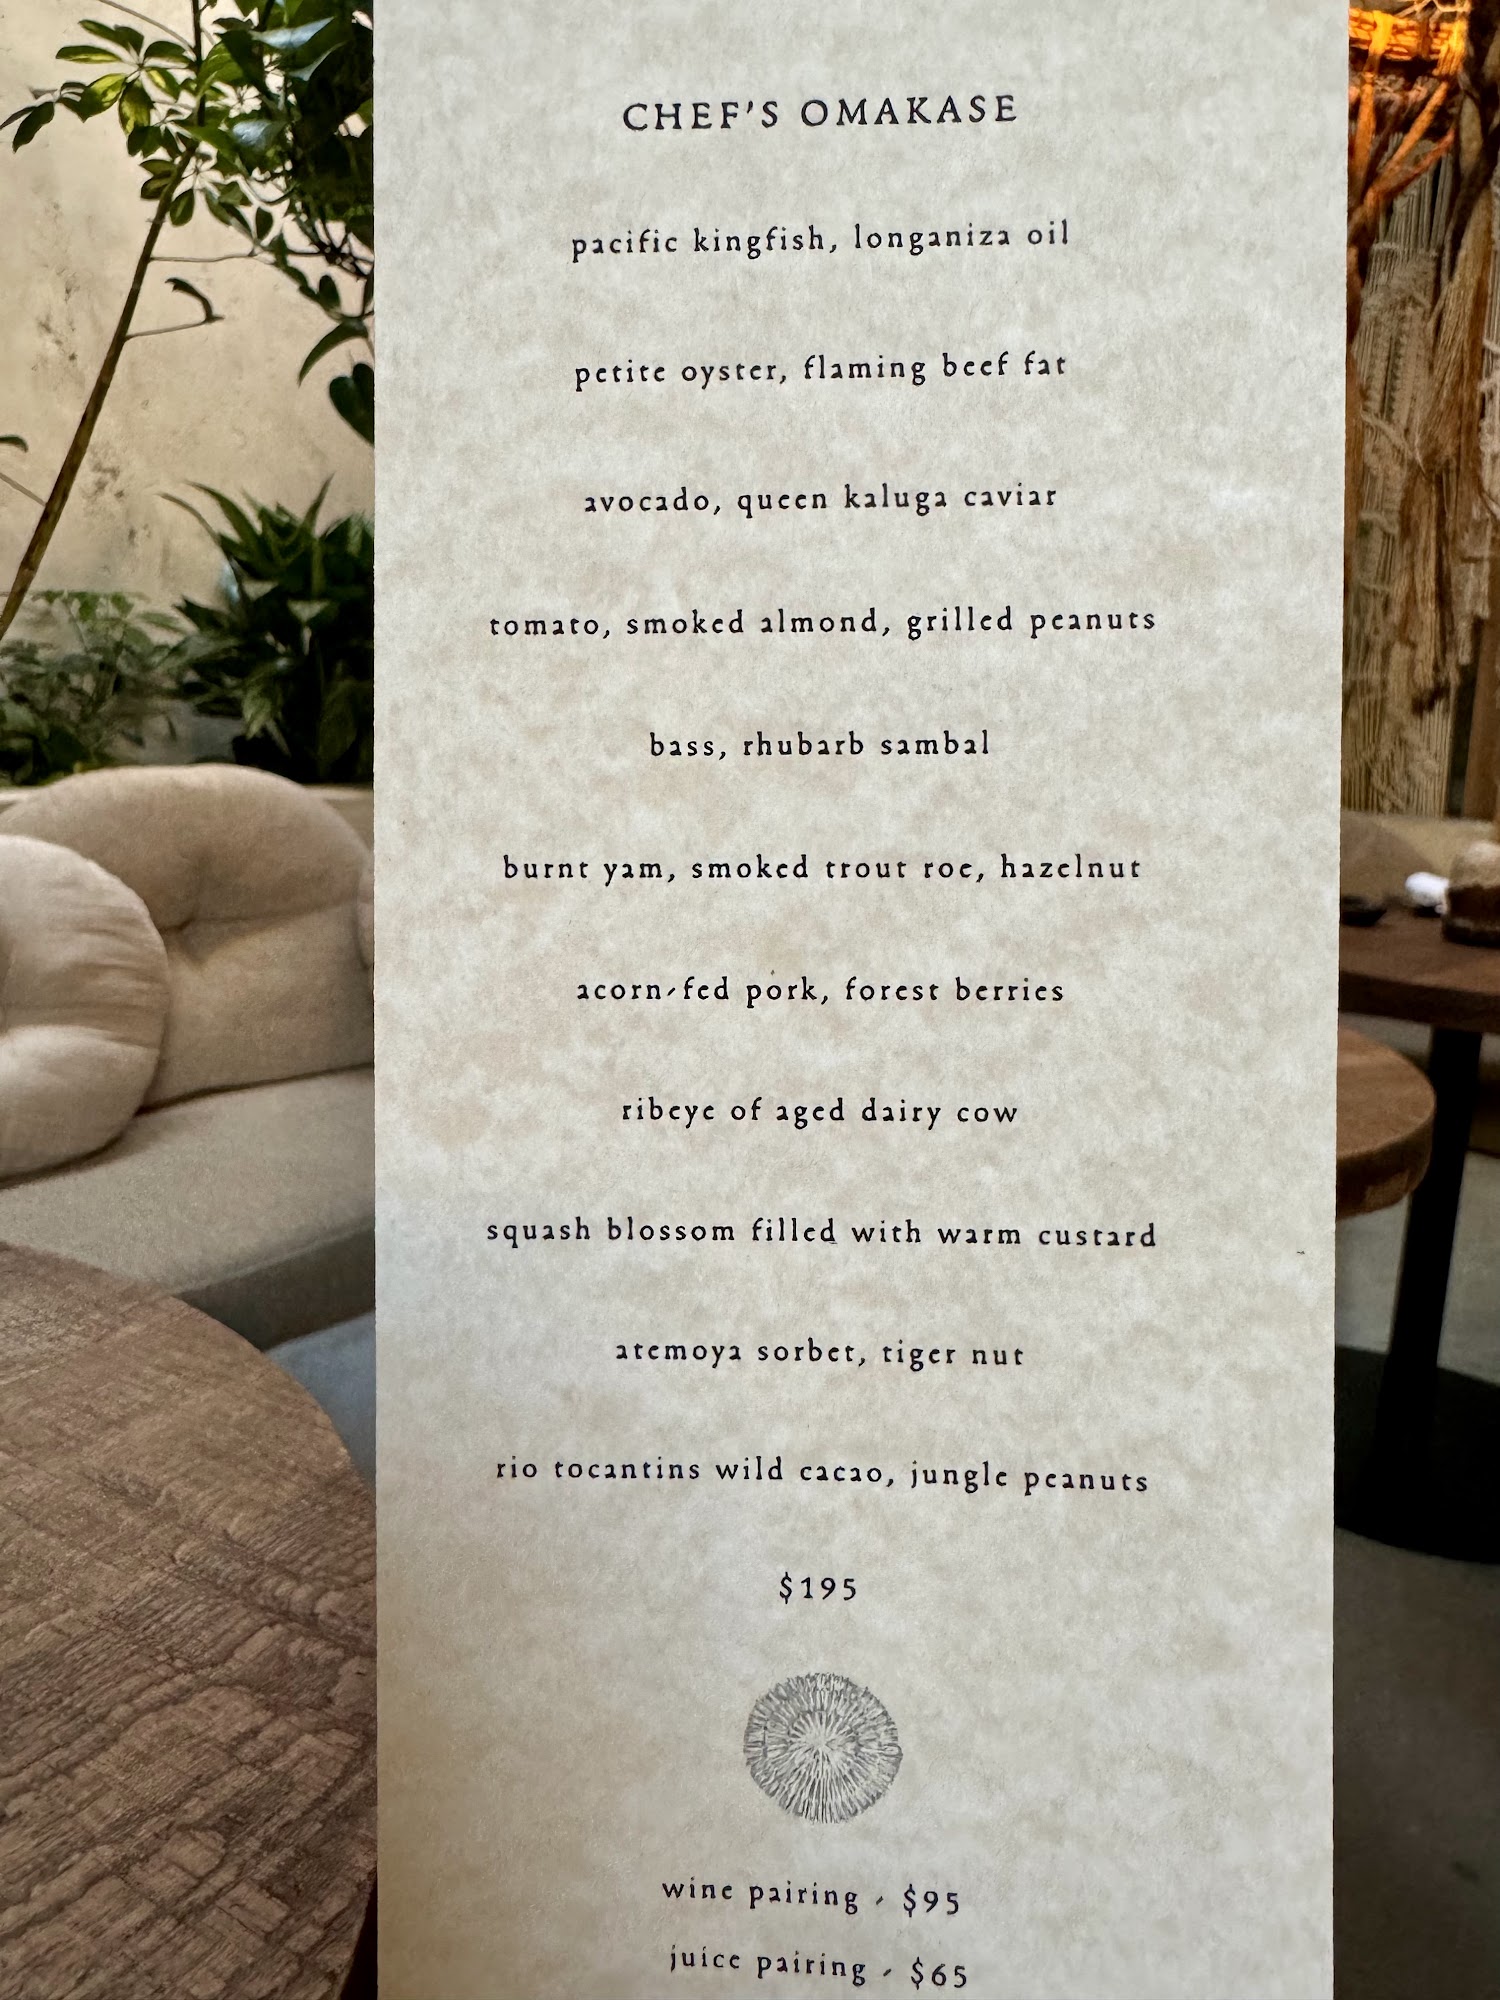 CHEF'S OMAKASE
pacific kingfish, longaniza oil
petite oyster, flaming beef fat
avocado, queen kaluga caviar
tomato, smoked almond, grilled peanuts
bass, rhubarb sambal
burnt yam, smoked trout roe, hazelnut
acorn-fed pork, forest berries
ribeye of aged dairy cow
squash blossom filled with warm custard
atemoya sorbet, tiger nut
rio tocantins wild cacao, jungle peanuts
$195
wine pairing - $95
juice pairing - $65